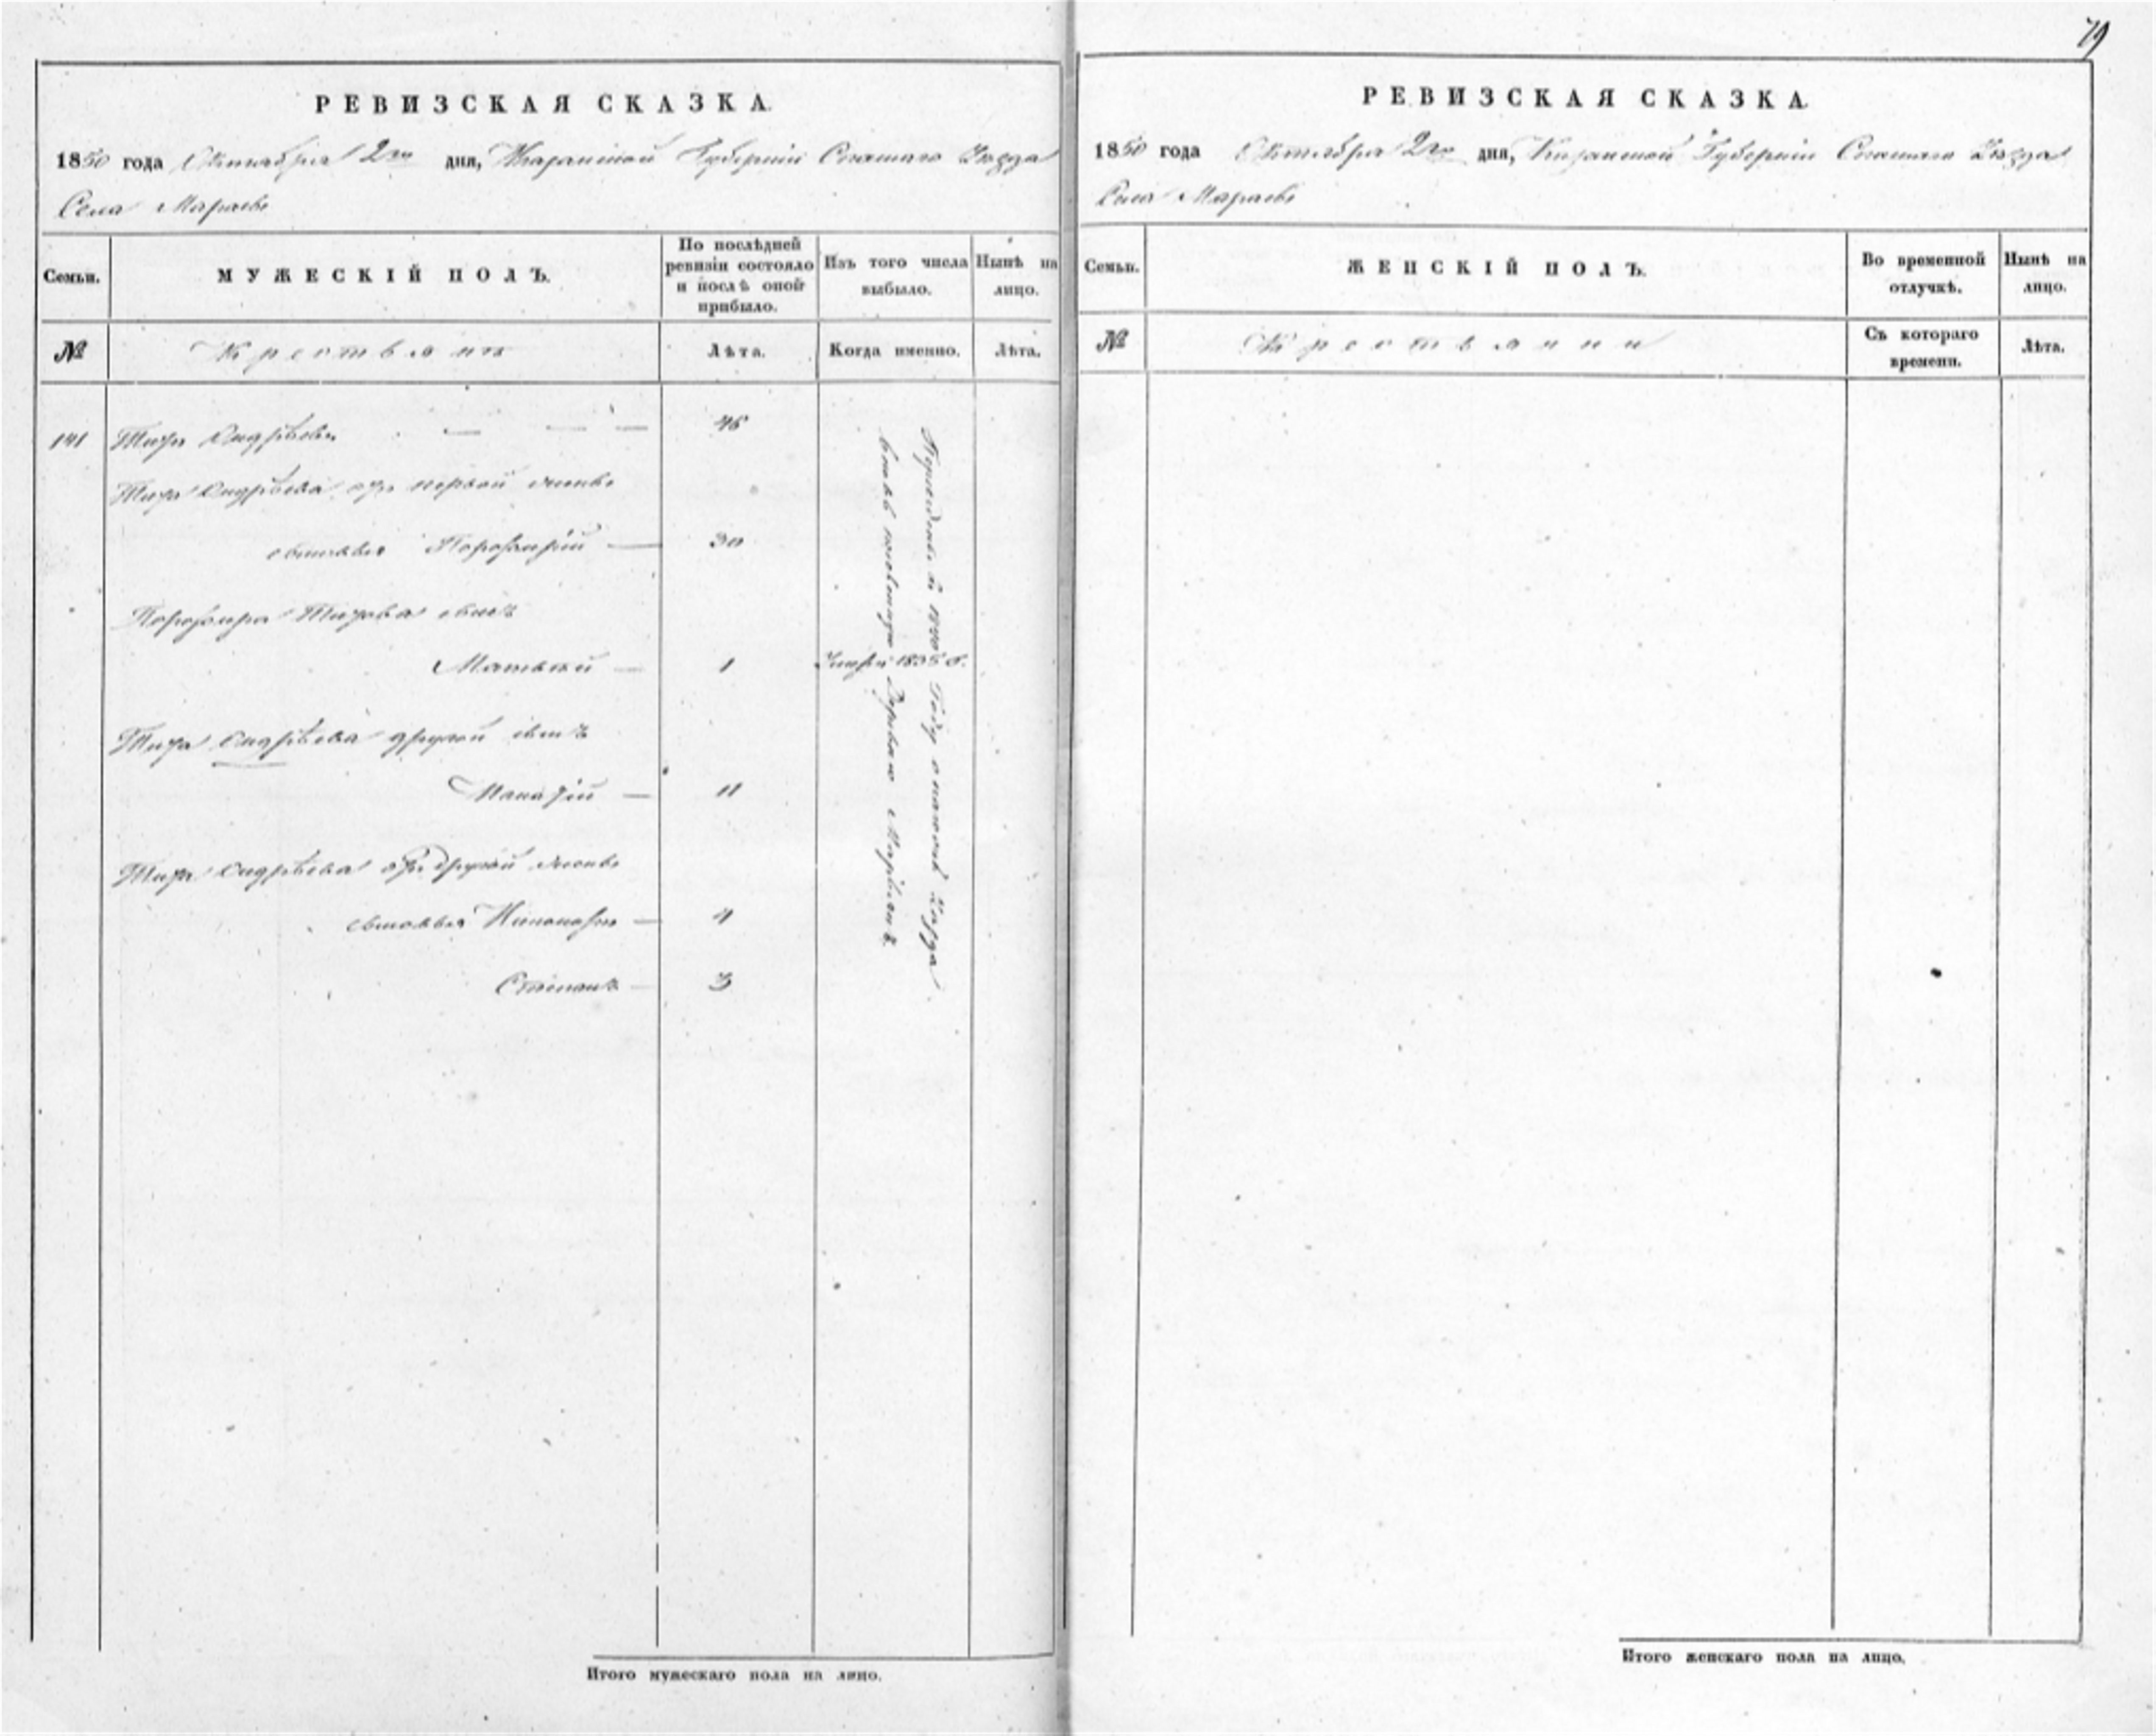 79
РЕВИЗСКАЯ СКАЗКА.
1850 года Октября 2го дня, Казанской Губернии Спаскаго Уезда
Села Мараевъ
Семьи.
МУЖЕСКІЙ ПОЛЪ.
По послѣдней
ревизіи состояло
и послѣ оной
прибыло.
Изъ того числа
выбыло.
Нынѣ на
лицо.
№
Крестьянъ
Лѣта.
Когда именно.
Лѣта.
141
Титъ Андрѣевъ
46
Тита Андрѣева отъ первой жены
сыновья Порфирій
30
Порфира Титова сынъ
Матвей
1
Умеръ 1835 г.
Тита Андрѣева другой сынъ
11
Тита Андрѣева отъ другой жены
сыновья
4
Степанъ
3
въ 1840 Году
Деревню
Итого мужескаго пола на лицо.
РЕВИЗСКАЯ СКАЗКА.
1850 года Октября 2го дня, Казанской Губернии Спаскаго Уезда
Села Мараевъ
Семьи.
ЖЕНСКІЙ ПОЛЪ.
Во временной
отлучкѣ.
Нынѣ на
лицо.
№
Крестьянки
Съ котораго
времени.
Лѣта.
Итого женскаго пола на лицо.